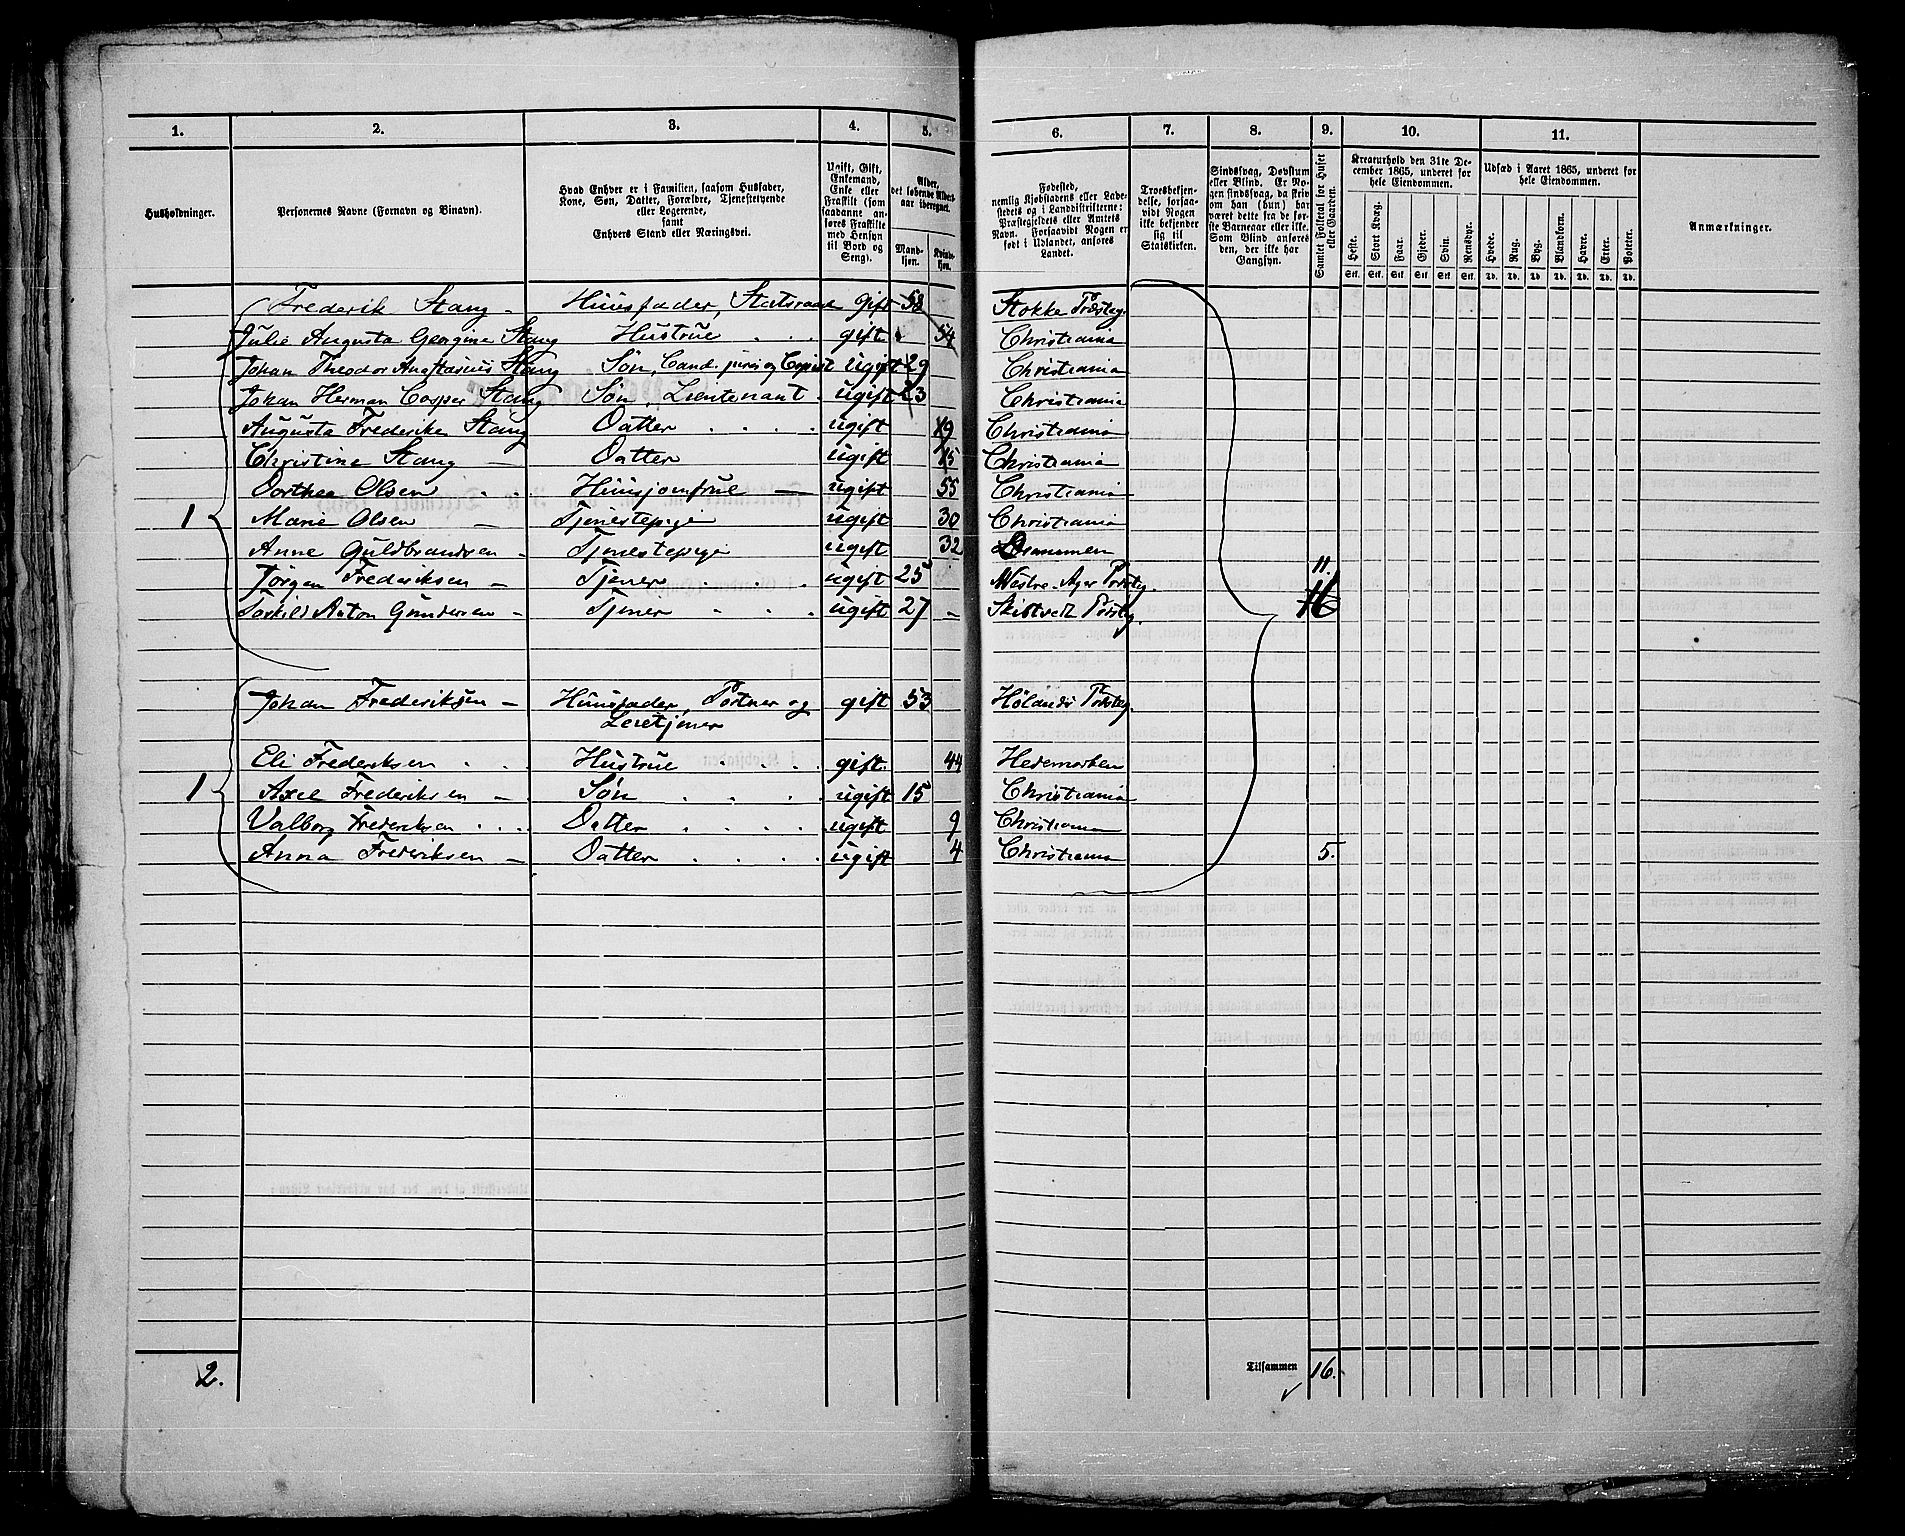 1. 2. 3. 4. 5. 6. 7. 8. 9. 10. 11.
Husholdninger.
Personernes Navne (Fornavn og Binavn).
Hvad Enhver er i Familien, saasom Husfader,
Kone, Søn, Datter, Forældre, Tjenestetyende
eller Logerende,
samt
Enhvers Stand eller Næringsvei.
Ugift, Gift,
Enkemand,
Enke eller
Fraskilt (som
saadanne an-
føres Fraskilte
med Hensyn
til Bord og
Seng).
Alder,
det løbende Alders-
aar iberegnet.
Mand-
kjøn.
Kvinde-
kjøn.
Fødested,
nemlig Kjøbstadens eller Lade-
stedets og i Landdistrikterne:
Præstegjeldets eller Amtets
Navn. Forsaavidt Nogen er
født i Udlandet, anføres
Landet.
Troesbekjen-
delse, forsaa-
vidt Nogen
ikke bekjender
sig til
Statskirken.
Sindssvag, Døvstum
eller Blind. Er No-
gen sindssvag, da skriv
om han (hun) har
været dette fra de før-
ste Barneaar eller ikke.
Som Blind anføres
den, der ikke har
Gangsyn.
Samlet Folketal for Huset
eller Gaarden.
Kreaturhold den 31te De-
cember 1865, underet for
hele Eiendommen.
Heste. Stort Kvæg. Faar. Gjeder. Svin. Rensdyr.
Stk. Stk. Stk. Stk. Stk. Stk.
Udsæd i Aaret 1865, underet for
hele Eiendommen.
Hvede. Rug. Byg. Blandkorn. Havre. Erter. Poteter.
Td. Td. Td. Td. Td. Td. Td.
Anmærkninger.
Frederik Stang - Huusfader, Statsraad gift 58 Stokke Præsteg.
Julie Augusta Georgine Stang Hustrue gift 54 Christiania
Johan Theodor Anastasius Stang Søn, Cand. juris og Copist ugift 29 Christiania
Johan Herman Casper Stang Søn, Lieutenant ugift 23 Christiania
Augusta Frederike Stang Datter ugift 19 Christiania
Christine Stang - Datter ugift 15 Christiania
Dorthea Olsen Huusjomfrue - ugift 55 Christiania
1 Marie Olsen - Tjenestepige ugift 30 Christiania
Anne Guldbrandsen - Tjenestepige ugift 32 Drammen
Jørgen Frederiksen - Tjener ugift 25 Westre-Ager Præsteg. 11.
Torkild Anton Gundersen - Tjener ugift 27 - Skibtvedt Præsteg. 16
Johan Frederiksen - Huusfader, Portner og gift 53 Hølands Præsteg.
Leietjener
Eli Frederiksen Hustrue gift. 44 Hedemarken
1 Axel Frederiksen - Søn ugift 15 Christiania
Valborg Frederiksen Datter ugift 9 Christiania
Anna Frederiksen - Datter ugift 4 Christiania 5.
2. Tilsammen 16.